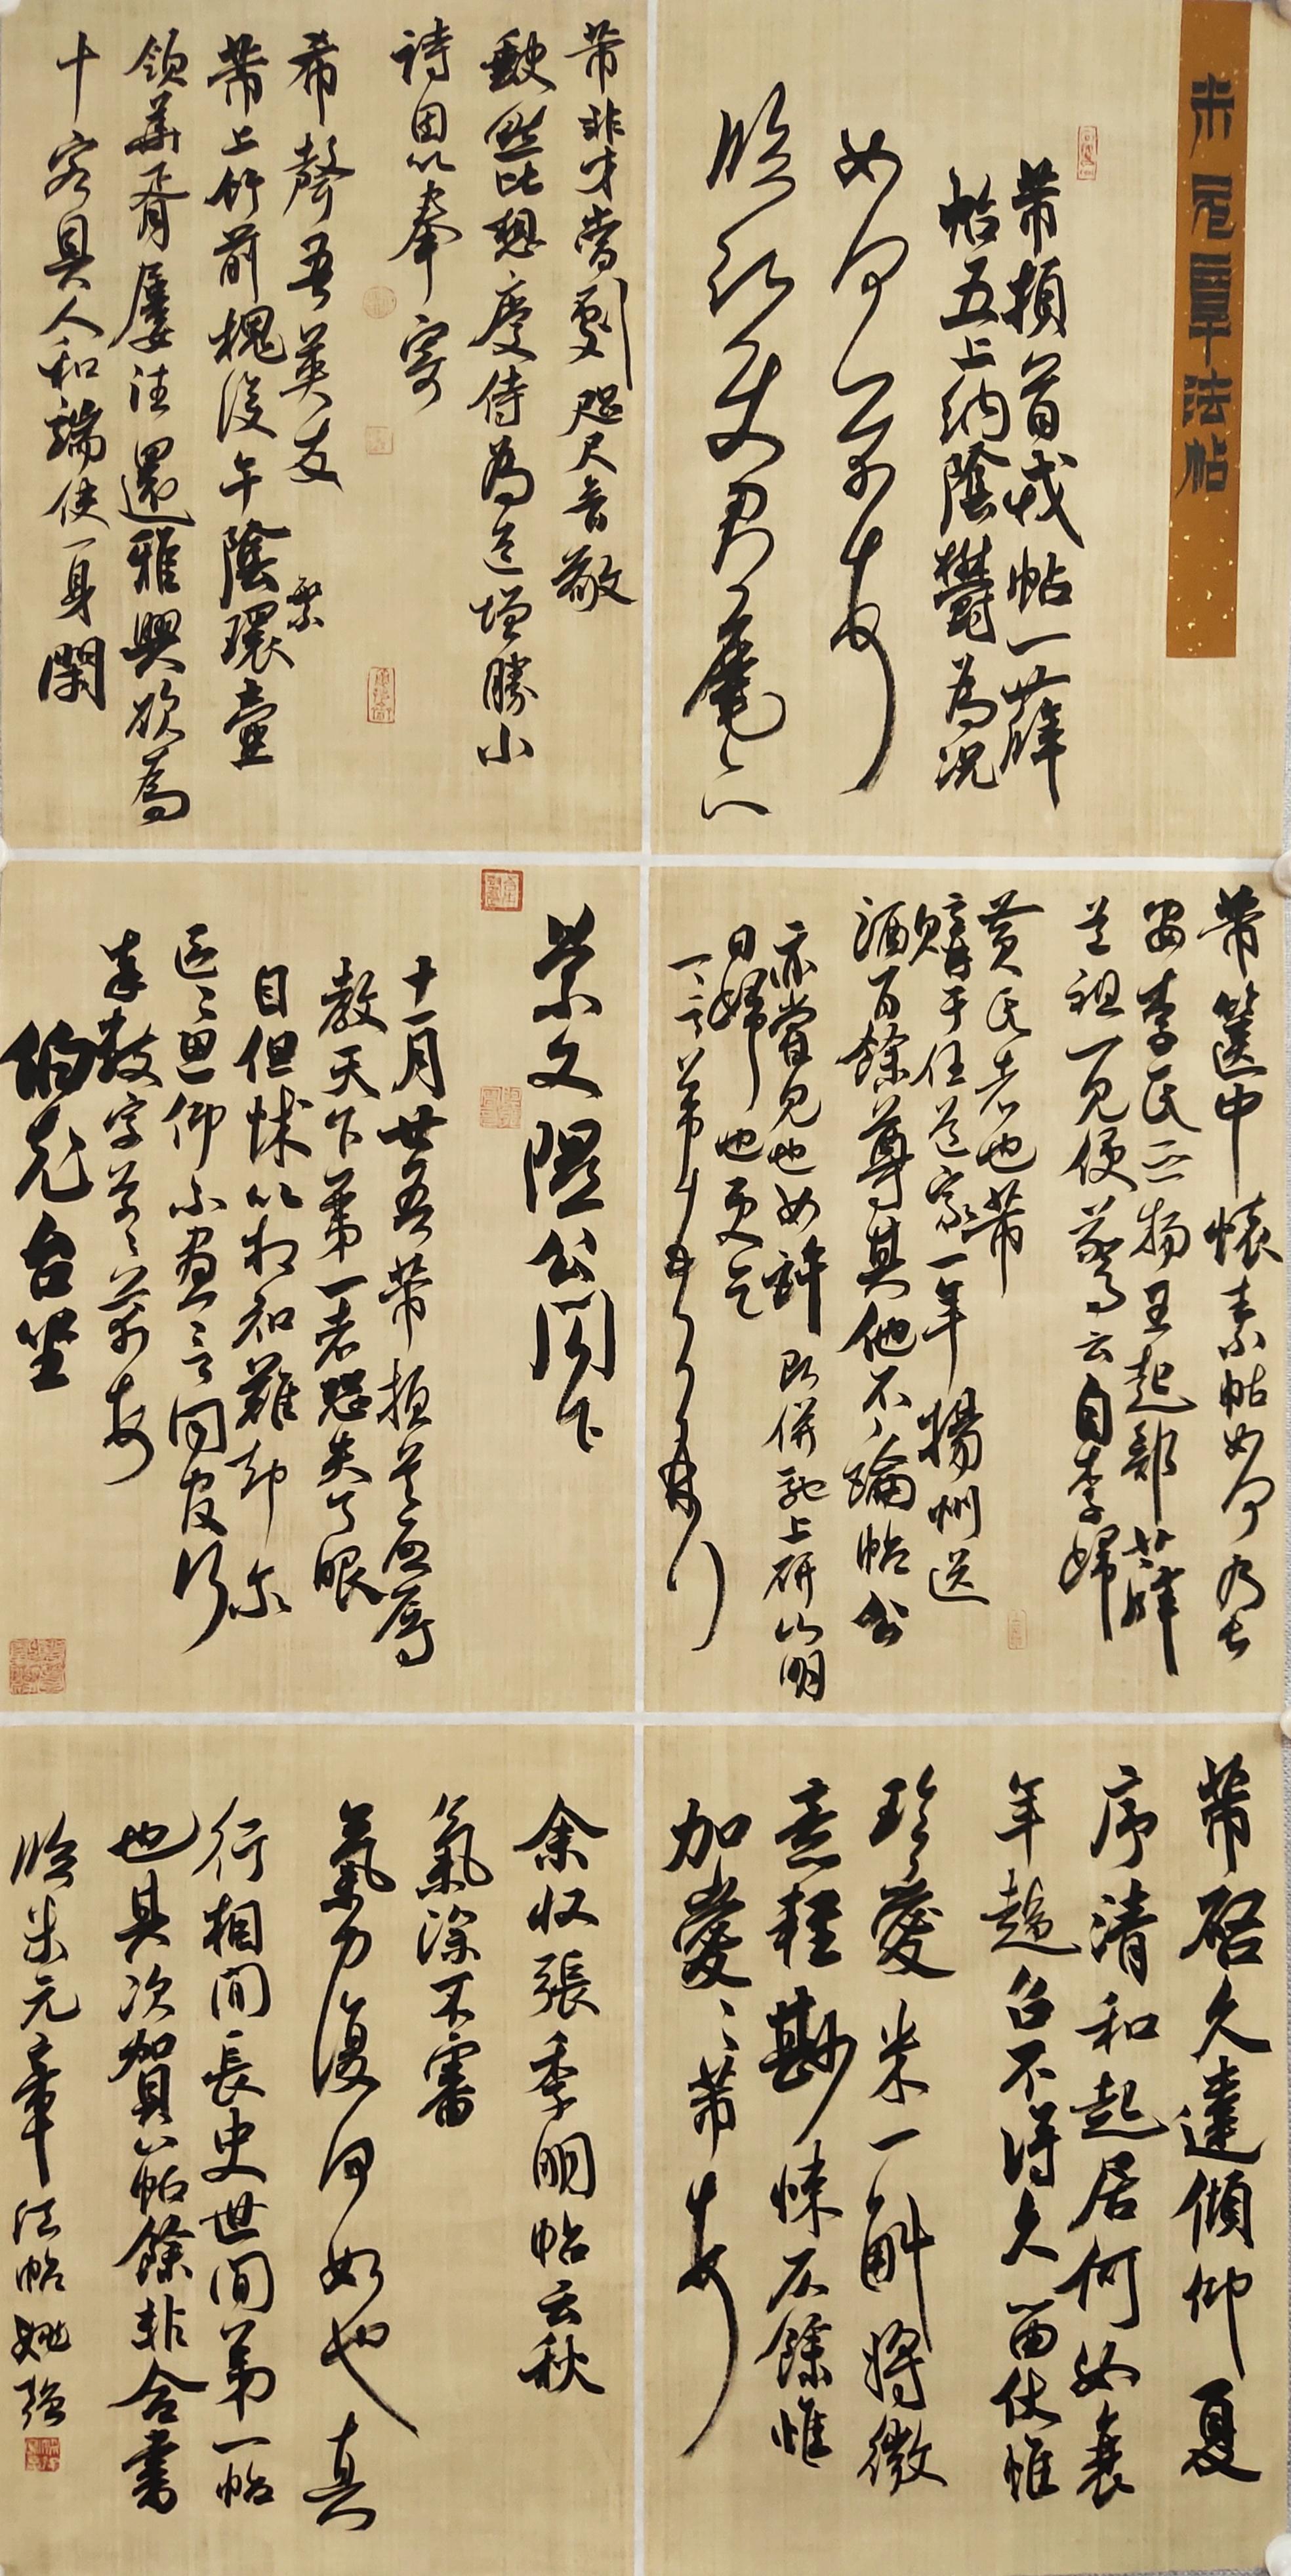 米元章法帖
芾頓首戎帖一薛
帖五上納陰鬱為況
如何芾頓首
臨深使君麾下
芾非才當劇咫尺音敬
缺然比想慶侍為道增勝小
詩因以奉寄
希聲吾英友 芾上
芾上竹前槐後午陰環壺
領華胥屢往還雅興欲為
十客具人和端使一身閑
芾篋中懷素帖如何乃長
安李氏之物王起部薛
道祖一見便驚云自李歸
黃氏者也芾
購于任道家一年揚州送
酒百餘尊其他不論帖公
亦嘗見也如許即併馳上研山明
日歸也更乞
一言芾頓首
景文隰公閣下
十一月廿五芾頓首啟辱
教天下第一者恐失了眼
目但怵以相知難却爾
區區思仰不盡言同官行
奉數字草草芾頓首
伯充台坐
芾啓久違傾仰夏
序清和起居何如衰
年趨召不得久留伏惟
珍愛米一斛將微
意輕尠悚仄餘惟
加愛加愛芾頓首
余收張季明帖云秋
氣深不審
氣力復何如也真
行相間長史世間第一帖
也其次賀八帖餘非合書
臨米元章法帖姚強